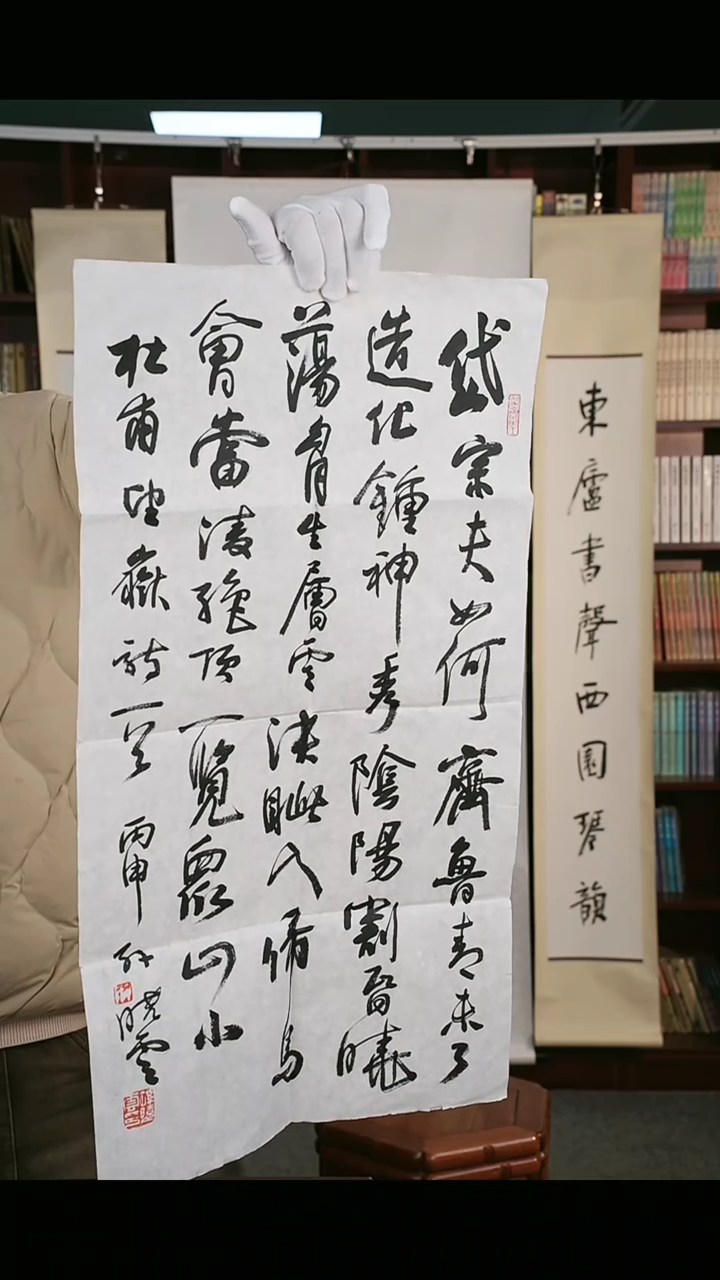 東廬書聲西園琴韻
岱宗夫如何齊魯青未了
造化鍾神秀陰陽割昏曉
蕩胷生層雲決眦入歸鳥
會當淩絕頂一覽眾山小
杜甫望嶽詩一首 丙申 孫曉雲